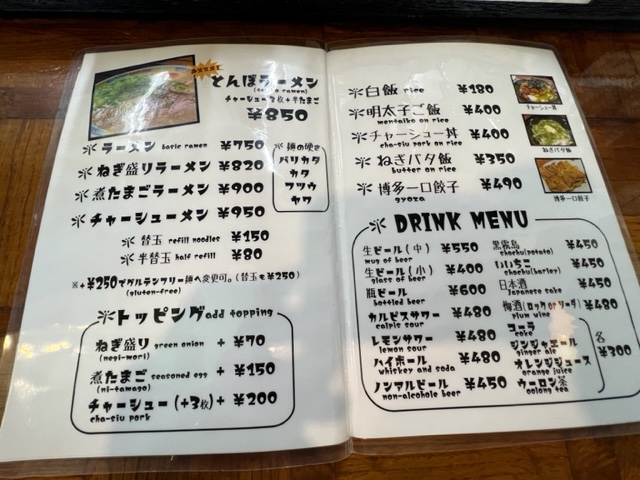 とんぼラーメン
チャーシュー3枚+半たまご
¥850
ラーメン basic ramen ¥750
ねぎ盛りラーメン ¥820
煮たまごラーメン ¥900
チャーシューメン ¥950
替玉 refill noodles ¥150
半替玉 half refill ¥80
麺の硬さ
バリカタ
カタ
フツウ
ヤワ
※+¥250でグルテンフリー麺へ変更可。(替玉も¥250)
(gluten-free)
トッピング add topping
ねぎ盛り green onion + ¥70
(negi-mori)
煮たまご seasoned egg + ¥150
(ni-tamago)
チャーシュー (+3枚) + ¥200
cha-siu pork
白飯 rice ¥180
明太子ご飯 ¥400
mentaiko on rice
チャーシュー丼 ¥400
cha-siu pork on rice
ねぎバタ飯 ¥350
butter on rice
博多一口餃子 ¥490
gyoza
チャーシュー丼
ねぎバタ飯
博多一口餃子
DRINK MENU
生ビール(中) ¥550
mug of beer
生ビール(小) ¥400
glass of beer
瓶ビール ¥600
bottled beer
カルピスサワー ¥480
calpis sour
レモンサワー ¥480
lemon sour
ハイボール ¥480
whiskey and soda
ノンアルビール ¥450
non-alcohole beer
黒霧島 ¥450
shochu(potato)
いいちこ ¥450
shochu(barley)
日本酒 ¥450
Japanese sake
梅酒(ロックorソーダ) ¥480
plum wine
コーラ
coke
ジンジャエール
ginger ale
オレンジジュース
orange juice
ウーロン茶
oolong tea
各
¥300